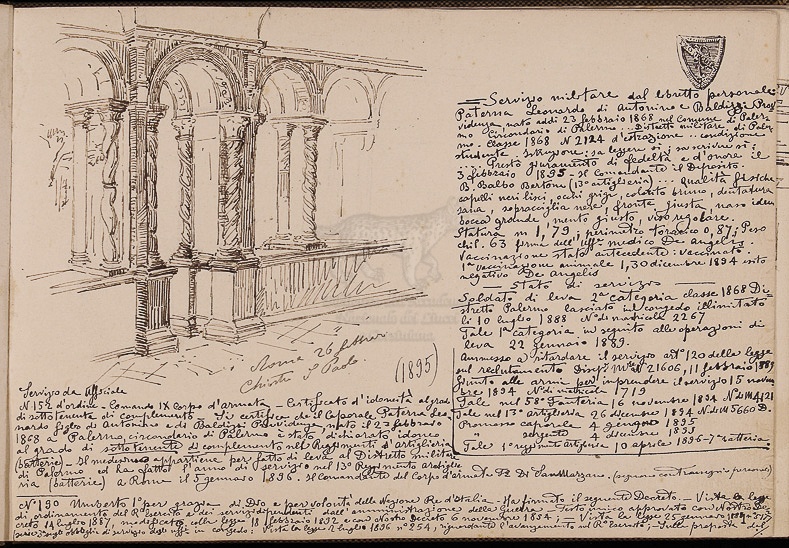 = Servizio militare dal libretto personale:
Paterna Leonardo di Antonino e Baldizzi Prov
videnza, nato addì 23 febbraio 1868 nel Comune di Paler=
mo Circondario di Palermo - Distretto militare di Paler
mo. Classe 1868 N 2124 d'estrazione - condizione
studente istruzione: sa leggere sì; sa scrivere sì;
... Prestò giuramento di fedeltà e d'onore il
3 febbraio 1895 - Il Comandante il Deposito.
B. Balbo Bertone (13º artiglieria) - Qualità fisiche
capelli neri lisci, occhi grigi, colorito bruno, dentatura
sana, sopracciglia nere, fronte giusta, naso idem
bocca grande mento giusto, viso regolare.
Statura m 1,79; perimetro toracico 0,87; Peso
chil. 63 firma dell'uffle medico De Angelis
Vaccinazione stato antecedente: vaccinato
1ª vaccinazione animale 1, 30 dicembre 1894 esito
negativo De Angelis
— Stato di servizio —
Soldato di leva 2ª categoria classe 1868 Di=
stretto Palermo lasciato in congedo illimitato
lì 10 luglio 1888 Nº di matricola 2267
Tale 1ª categoria in seguito alle operazioni di
leva 22 gennaio 1889.
Ammesso a ritardare il servizio artº 120 della legge
sul reclutamento 21606, 11 febbraio 1889
Giunto alle armi per imprendere il servizio 15 novem=
bre 1894 Nº di matricola 1719
Tale nel 58º Fanteria 16 novembre 1894 Nº di M 4121
Tale nel 13º artiglieria 26 dicembre 1894 Nº di M 5660 D.
Promosso caporale 4 giugno 1895
" sergente 4 dicembre 1895
Tale 1º reggimento artiglieria 10 aprile 1896 - 7ª batteria
Roma 26 febbrai
Chiostri S Paolo
(1895)
Servizio da Ufficiale
N 152 d'ordine - Comando IX Corpo d'armata - Certificato d'idoneità al grado
di sottotenente di complemento - Si certifica che il Caporale Paterna Leo=
nardo figlio di Antonino e di Baldizzi Provvidenza nato il 23 febbraio
1868 a Palermo, circondario di Palermo è stato dichiarato idoneo
al grado di sottotenente di complemento nei Reggimenti d'artiglieria
(batterie) - Il medesimo appartiene per fatto di leva al Distretto militare
di Palermo ed ha fatto l'anno di servizio nel 13º Reggimento artiglie
ria (batterie) a Roma il 5 gennaio 1896. Il Comandante del Corpo d'armata Di San Marzano.
Nº 190 Umberto 1º per grazia di Dio e per volontà della Nazione Re d'Italia - Ha firmato il seguente Decreto - Vista la legge
di ordinamento del R Esercito e dei servizi dipendenti dall'amministrazione della Guerra - Testo unico approvato con Nostro De=
creto 14 luglio 1887, modificato colla legge 18 febbraio 1892 e con Nostro Decreto 6 novembre 1894; - Vista la legge 25 gennaio 1888
sugli obblighi di servizio degli uff. in congedo; Vista la legge 2 luglio 1896 nº 254, riguardante l'avanzamento nel Rº Esercito; - Sulla proposta del